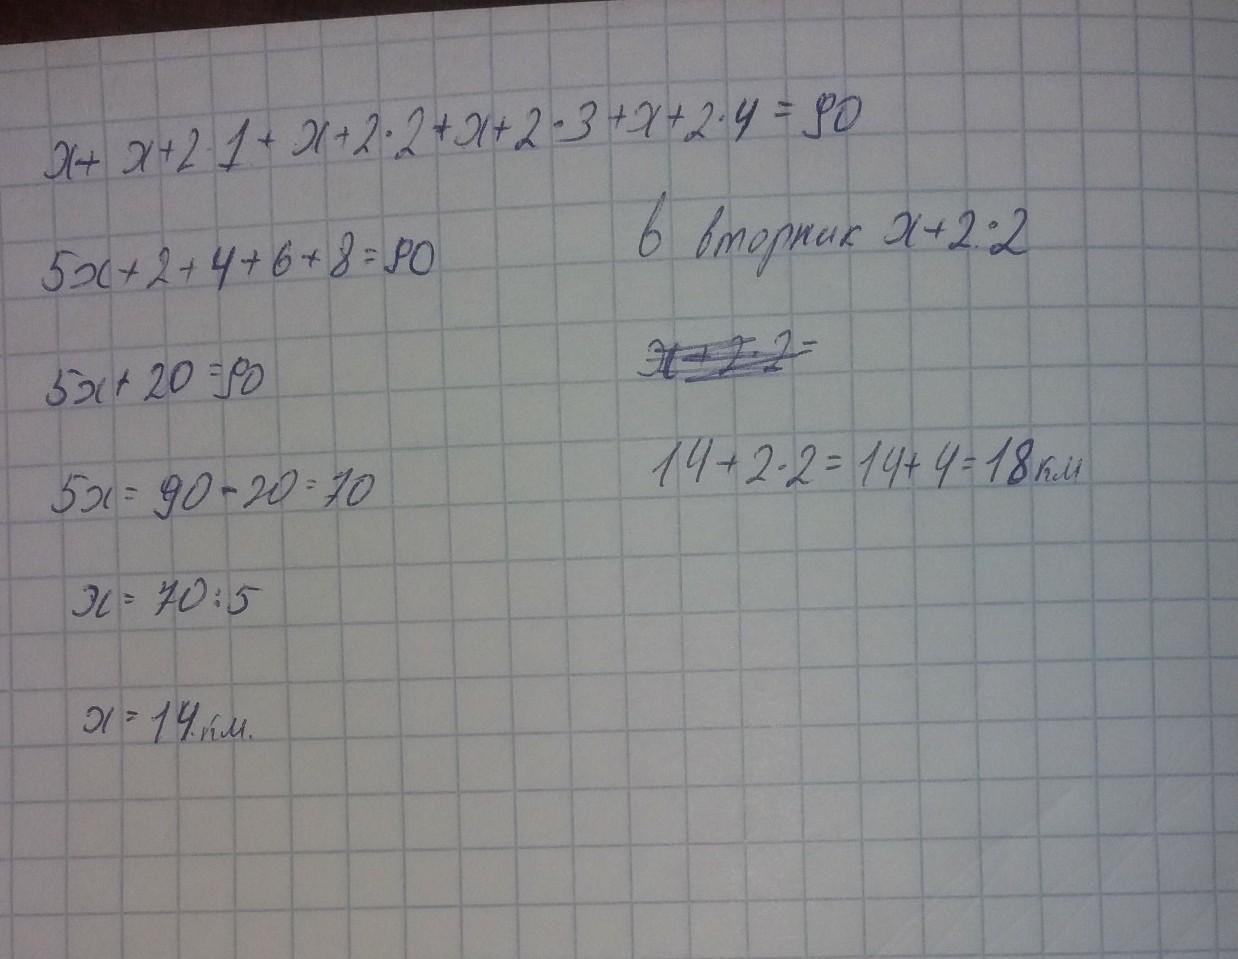 x+ x+2·1+ x+2·2+x+2·3+x+2·4=90
5x+2+4+6+8=90
5x+20=90
5x=90-20=70
x=70:5
x=14.км.
в вторник x+2·2
x+2·2=
14+2·2=14+4=18км